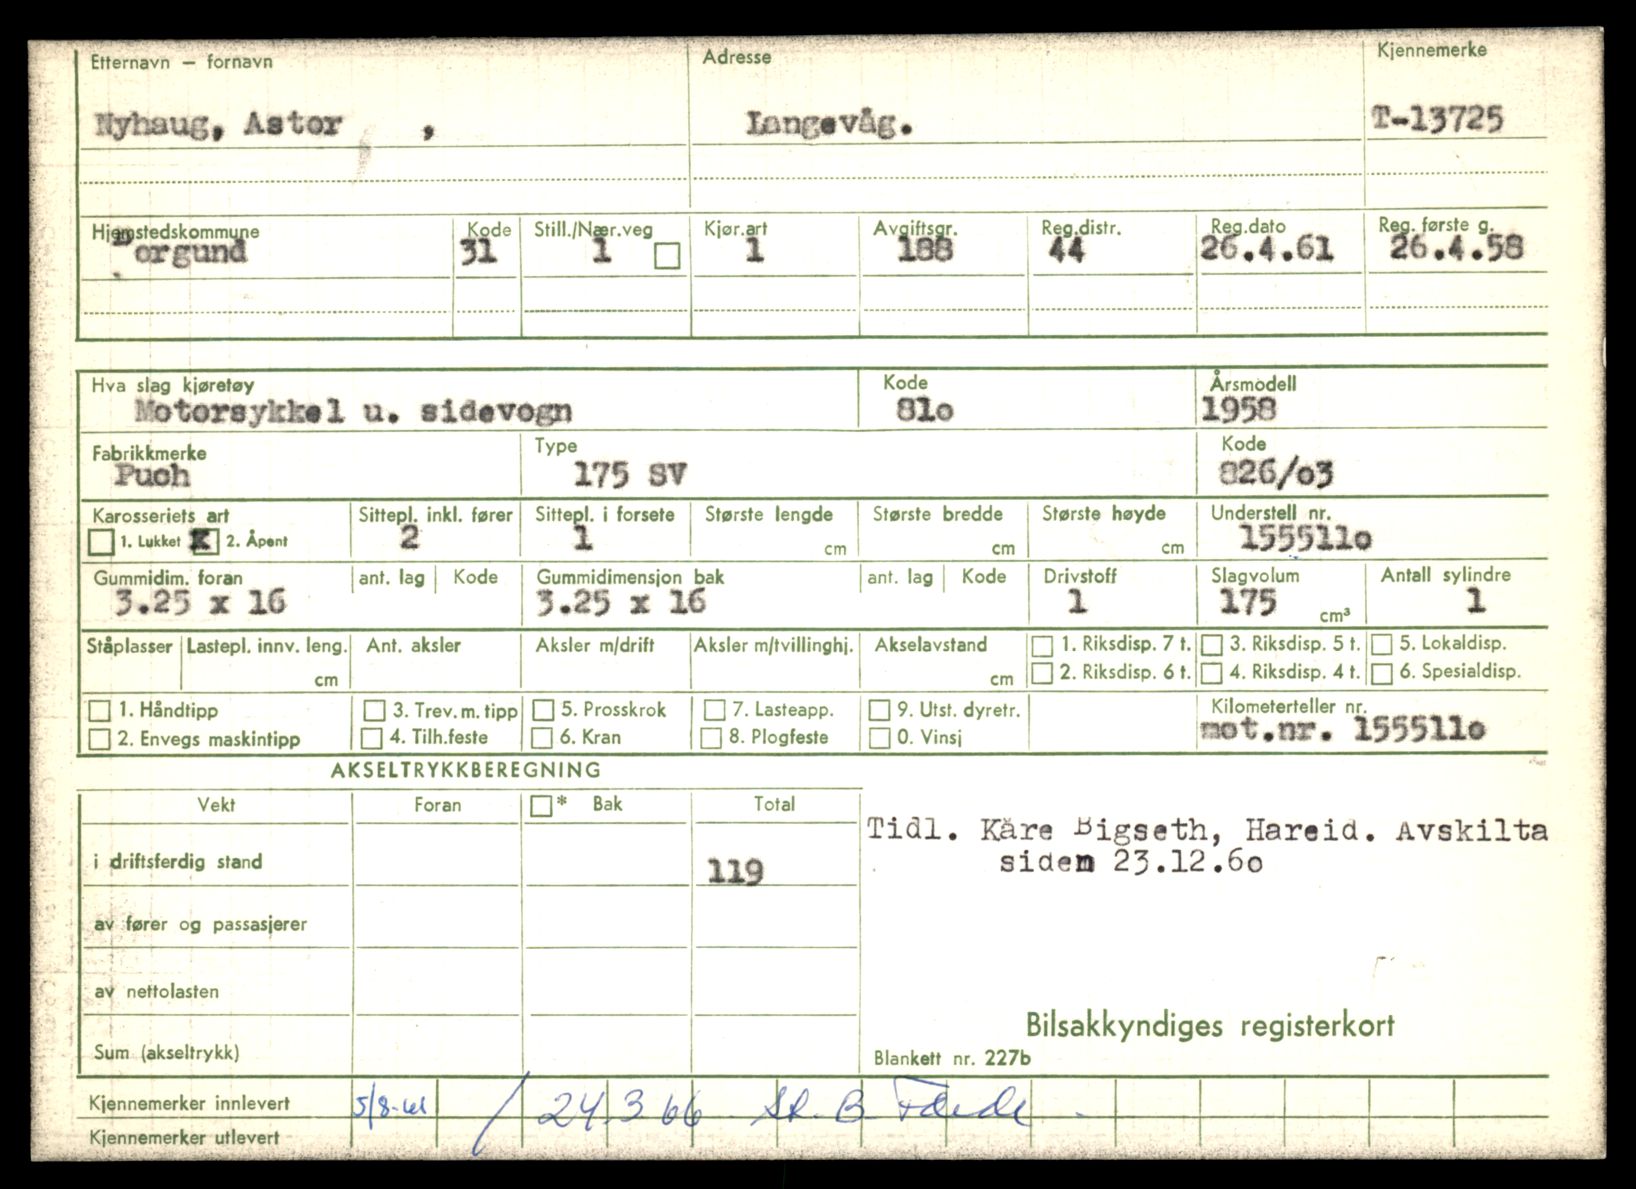 Etternavn – fornavn Adresse Kjennemerke
Nyhaug, Astor , Langevåg. T-13725
Hjemstedskommune Kode Still./Nær.veg Kjør.art Avgiftsgr. Reg.distr. Reg.dato Reg. første g.
Borgund 31 1 1 188 44 26.4.61 26.4.58
Hva slag kjøretøy Kode Årsmodell
Motorsykkel u. sidevogn 81o 1958
Fabrikkmerke Type Kode
Puch 175 SV 826/o3
Karosseriets art Sittepl. inkl. fører Sittepl. i forsete Største lengde Største bredde Største høyde Understell nr.
1. Lukket X 2. Åpent 2 1 cm cm cm 155511o
Gummidim. foran ant. lag Kode Gummidimensjon bak ant. lag Kode Drivstoff Slagvolum Antall sylindre
3.25 x 16 3.25 x 16 1 175 cm³ 1
Ståplasser Lastepl. innv. leng. Ant. aksler Aksler m/drift Aksler m/tvillinghj. Akselavstand 1. Riksdisp. 7 t. 3. Riksdisp. 5 t. 5. Lokaldisp.
cm cm 2. Riksdisp. 6 t. 4. Riksdisp. 4 t. 6. Spesialdisp.
1. Håndtipp 3. Trev. m. tipp 5. Prosskrok 7. Lasteapp. 9. Utst. dyretr. Kilometerteller nr.
2. Envegs maskintipp 4. Tilh.feste 6. Kran 8. Plogfeste 0. Vinsj mot.nr. 155511o
AKSELTRYKKBEREGNING
Vekt Foran * Bak Total
Tidl. Kåre Bigseth, Hareid. Avskilta
siden 23.12.6o
i driftsferdig stand 119
av fører og passasjerer
av nettolasten
Bilsakkyndiges registerkort
Sum (akseltrykk) Blankett nr. 227b
Kjennemerker innlevert 5/8-61 / 24.3 66 B.
Kjennemerker utlevert